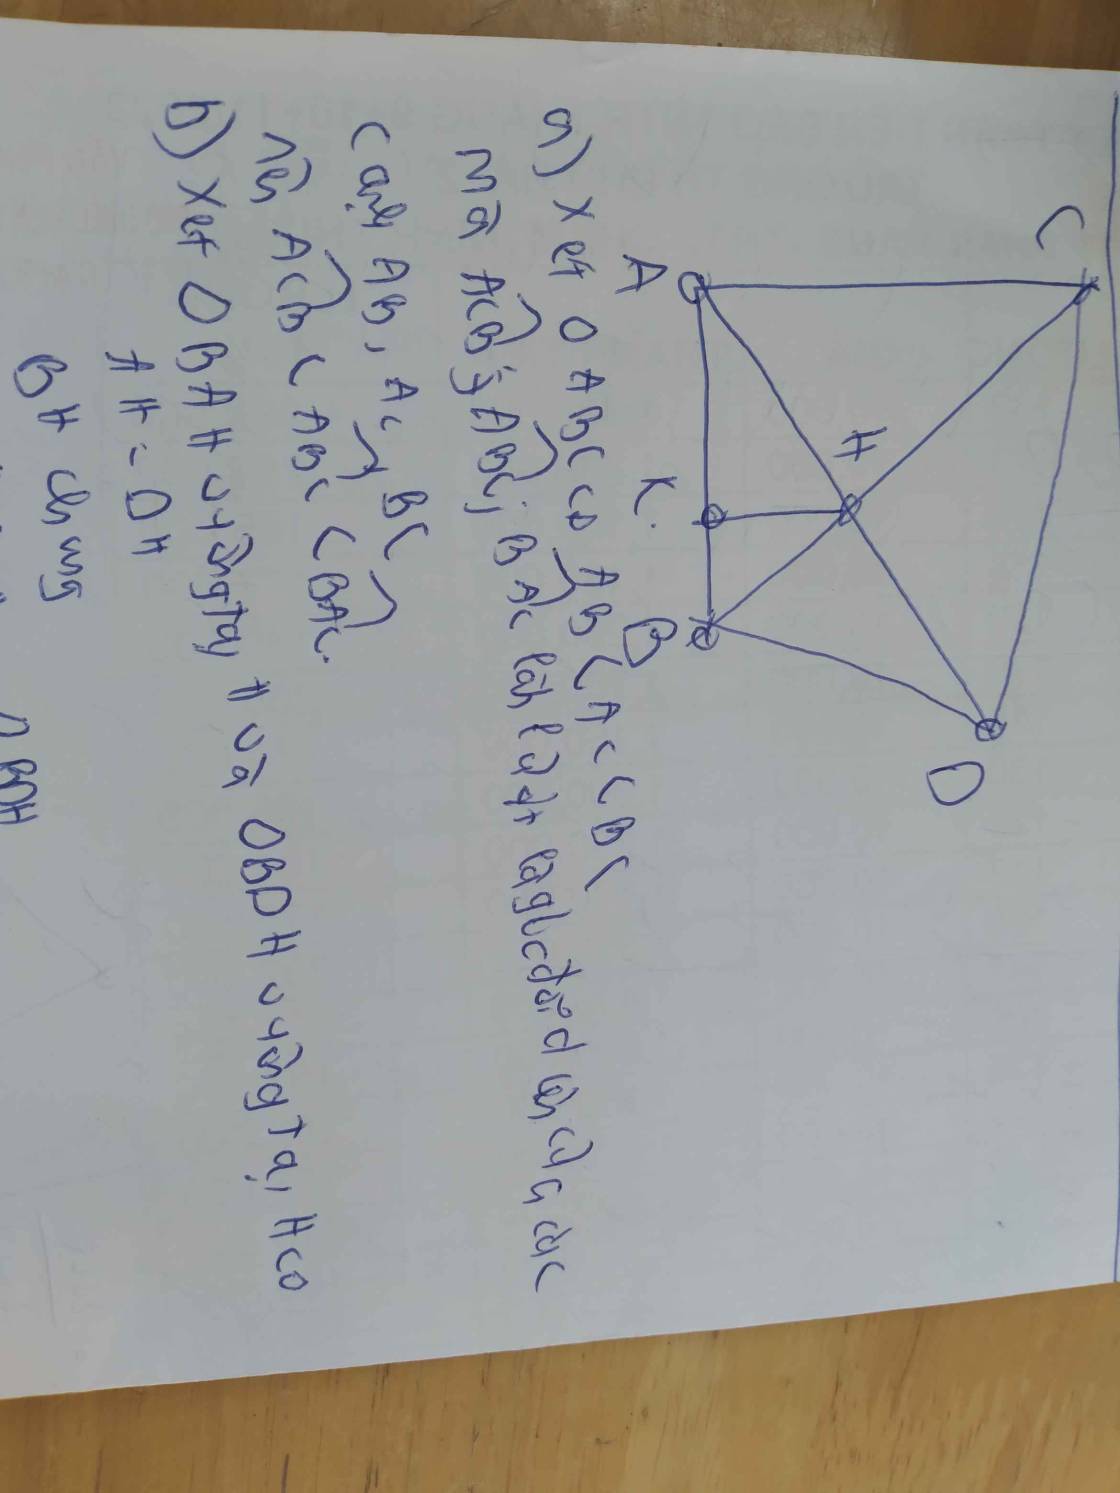 C
A
H
K
B
D
a) Xét △ABC có AB < AC < BC
Mà ACB; ABC; BAC lần lượt là góc đối diện của các
cạnh AB, AC, BC
nên ACB < ABC < BAC.
b) Xét △BAH vuông tại H và △BDH vuông tại H có
AH = DH
BH chung
BDH